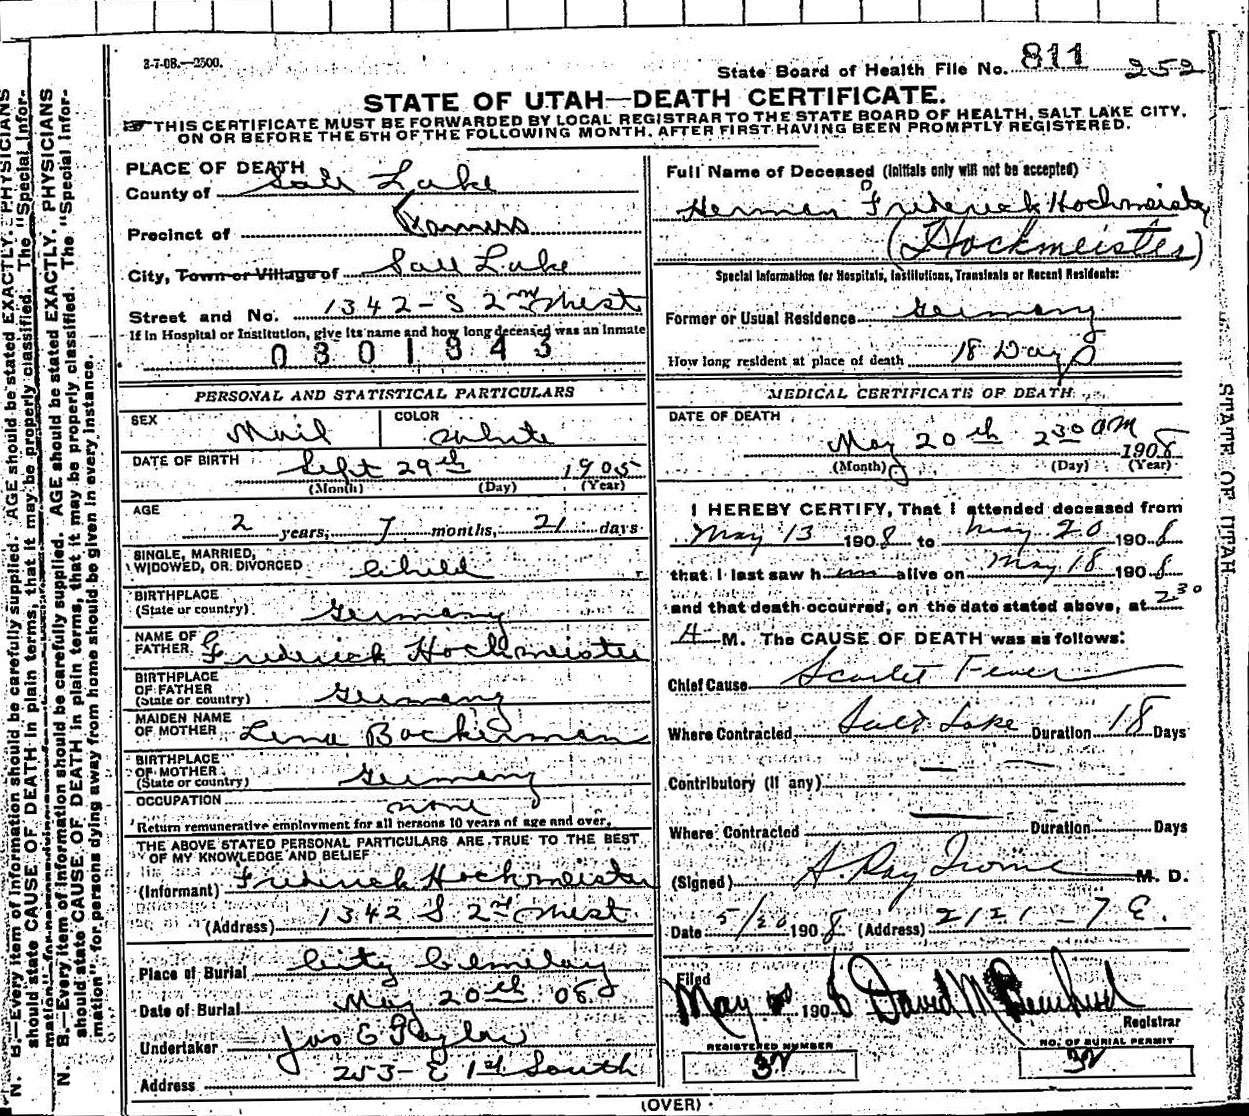 3-7-08.—2500.
State Board of Health File No. 811 252
STATE OF UTAH—DEATH CERTIFICATE.
THIS CERTIFICATE MUST BE FORWARDED BY LOCAL REGISTRAR TO THE STATE BOARD OF HEALTH, SALT LAKE CITY,
ON OR BEFORE THE 5TH OF THE FOLLOWING MONTH, AFTER FIRST HAVING BEEN PROMPTLY REGISTERED.
PLACE OF DEATH
County of Salt Lake
Precinct of
City, Town or Village of Salt Lake
Street and No. 1342 - S 2nd West
If in Hospital or Institution, give its name and how long deceased was an inmate
0301843
PERSONAL AND STATISTICAL PARTICULARS
SEX Mail COLOR White
DATE OF BIRTH Sept 29th 1905
(Month) (Day) (Year)
AGE
2 years, 7 months, 21 days
SINGLE, MARRIED,
WIDOWED, OR DIVORCED Child
BIRTHPLACE
(State or country) Germany
NAME OF
FATHER Frederick Hochmeister
BIRTHPLACE
OF FATHER
(State or country) Germany
MAIDEN NAME
OF MOTHER Lena Bockerman
BIRTHPLACE
OF MOTHER
(State or country) Germany
OCCUPATION none
Return remunerative employment for all persons 10 years of age and over.
THE ABOVE STATED PERSONAL PARTICULARS ARE TRUE TO THE BEST
OF MY KNOWLEDGE AND BELIEF
(Informant) Frederick Hochmeister
(Address) 1342 S 2nd West
Place of Burial City Cemetary
Date of Burial May 20th 08
Undertaker Jos E Taylor
Address 253 - E 1st South
Full Name of Deceased (Initials only will not be accepted)
Herman Frederick Hochmeister
(Hockmeister)
Special Information for Hospitals, Institutions, Transients or Recent Residents:
Former or Usual Residence Germany
How long resident at place of death 18 Days
MEDICAL CERTIFICATE OF DEATH
DATE OF DEATH
May 20th 2 30 AM 1908
(Month) (Day) (Year)
I HEREBY CERTIFY, That I attended deceased from
May 13 1908 to May 20 1908
that I last saw him alive on May 18 1908
and that death occurred, on the date stated above, at 2 30
A M. The CAUSE OF DEATH was as follows:
Chief Cause Scarlet Fever
Where Contracted Salt Lake Duration 18 Days
Contributory (if any) — —
Where Contracted — Duration Days
(Signed) A. Ray Irvine M. D.
Date 5/20 1908 (Address) 2121 - 7 E.
Filed
May 1908 David M
Registrar
REGISTERED NUMBER
32
NO. OF BURIAL PERMIT
32
(OVER)
N. B.—Every item of information should be carefully supplied. AGE should be stated EXACTLY. PHYSICIANS
should state CAUSE OF DEATH in plain terms, that it may be properly classified. The "Special Infor-
N. B.—Every item of information should be carefully supplied. AGE should be stated EXACTLY. PHYSICIANS
should state CAUSE OF DEATH in plain terms, that it may be properly classified. The "Special Infor-
mation" for persons dying away from home should be given in every instance.
STATE OF UTAH